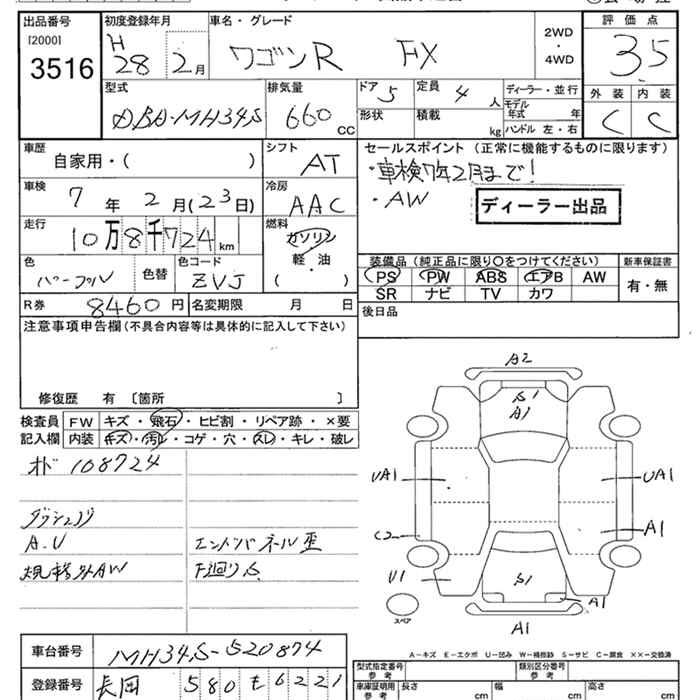 出品番号 初度登録年月 車名・グレード 評価点
[2000] H 2WD
3516 28 2月 ワゴンR FX ・ 3.5
4WD
型式 排気量 ドア 5 定員 4 人 ディーラー・並行 外装 内装
DBA-MH34S 660 CC 形状 積載 kg モデル年式 年 C C
ハンドル 左・右
車歴 シフト セールスポイント (正常に機能するものに限ります)
自家用・( ) AT ・車検7年2月まで!
車検 7年 2月(23日) 冷房 AAC ・AW
ディーラー出品
走行 10万8千724km 燃料 ガソリン
軽・油
( )
色 パープル 色替 色コード ZVJ
装備品 (純正品に限り○をつけてください) 新車保証書
PS PW ABS エアB AW 有・無
SR ナビ TV カワ
R券 8460円 名変期限 月 日 後日品
注意事項申告欄(不具合内容等は具体的に記入して下さい)
修復歴 有 〔箇所 〕
検査員 FW キズ・飛石・ヒビ割・リペア跡・×要
記入欄 内装 キズ・汚レ・コゲ・穴・スレ・キレ・破レ
オド 108724
A.U エンドパネル歪
規格外AW 下廻りS
A2
S1
A1
UA1 UA1
C2 A1
U1 S1 A1
スペア
A1
A-キズ E-エクボ U-凹み W-補修跡 S-サビ C-腐食 ××-交換済
車台番号 MH34S-520874
登録番号 長岡 580 も 6221
型式指定番号 参考 類別区分番号 参考
車庫証明用 参考 長さ cm 幅 cm 高さ cm